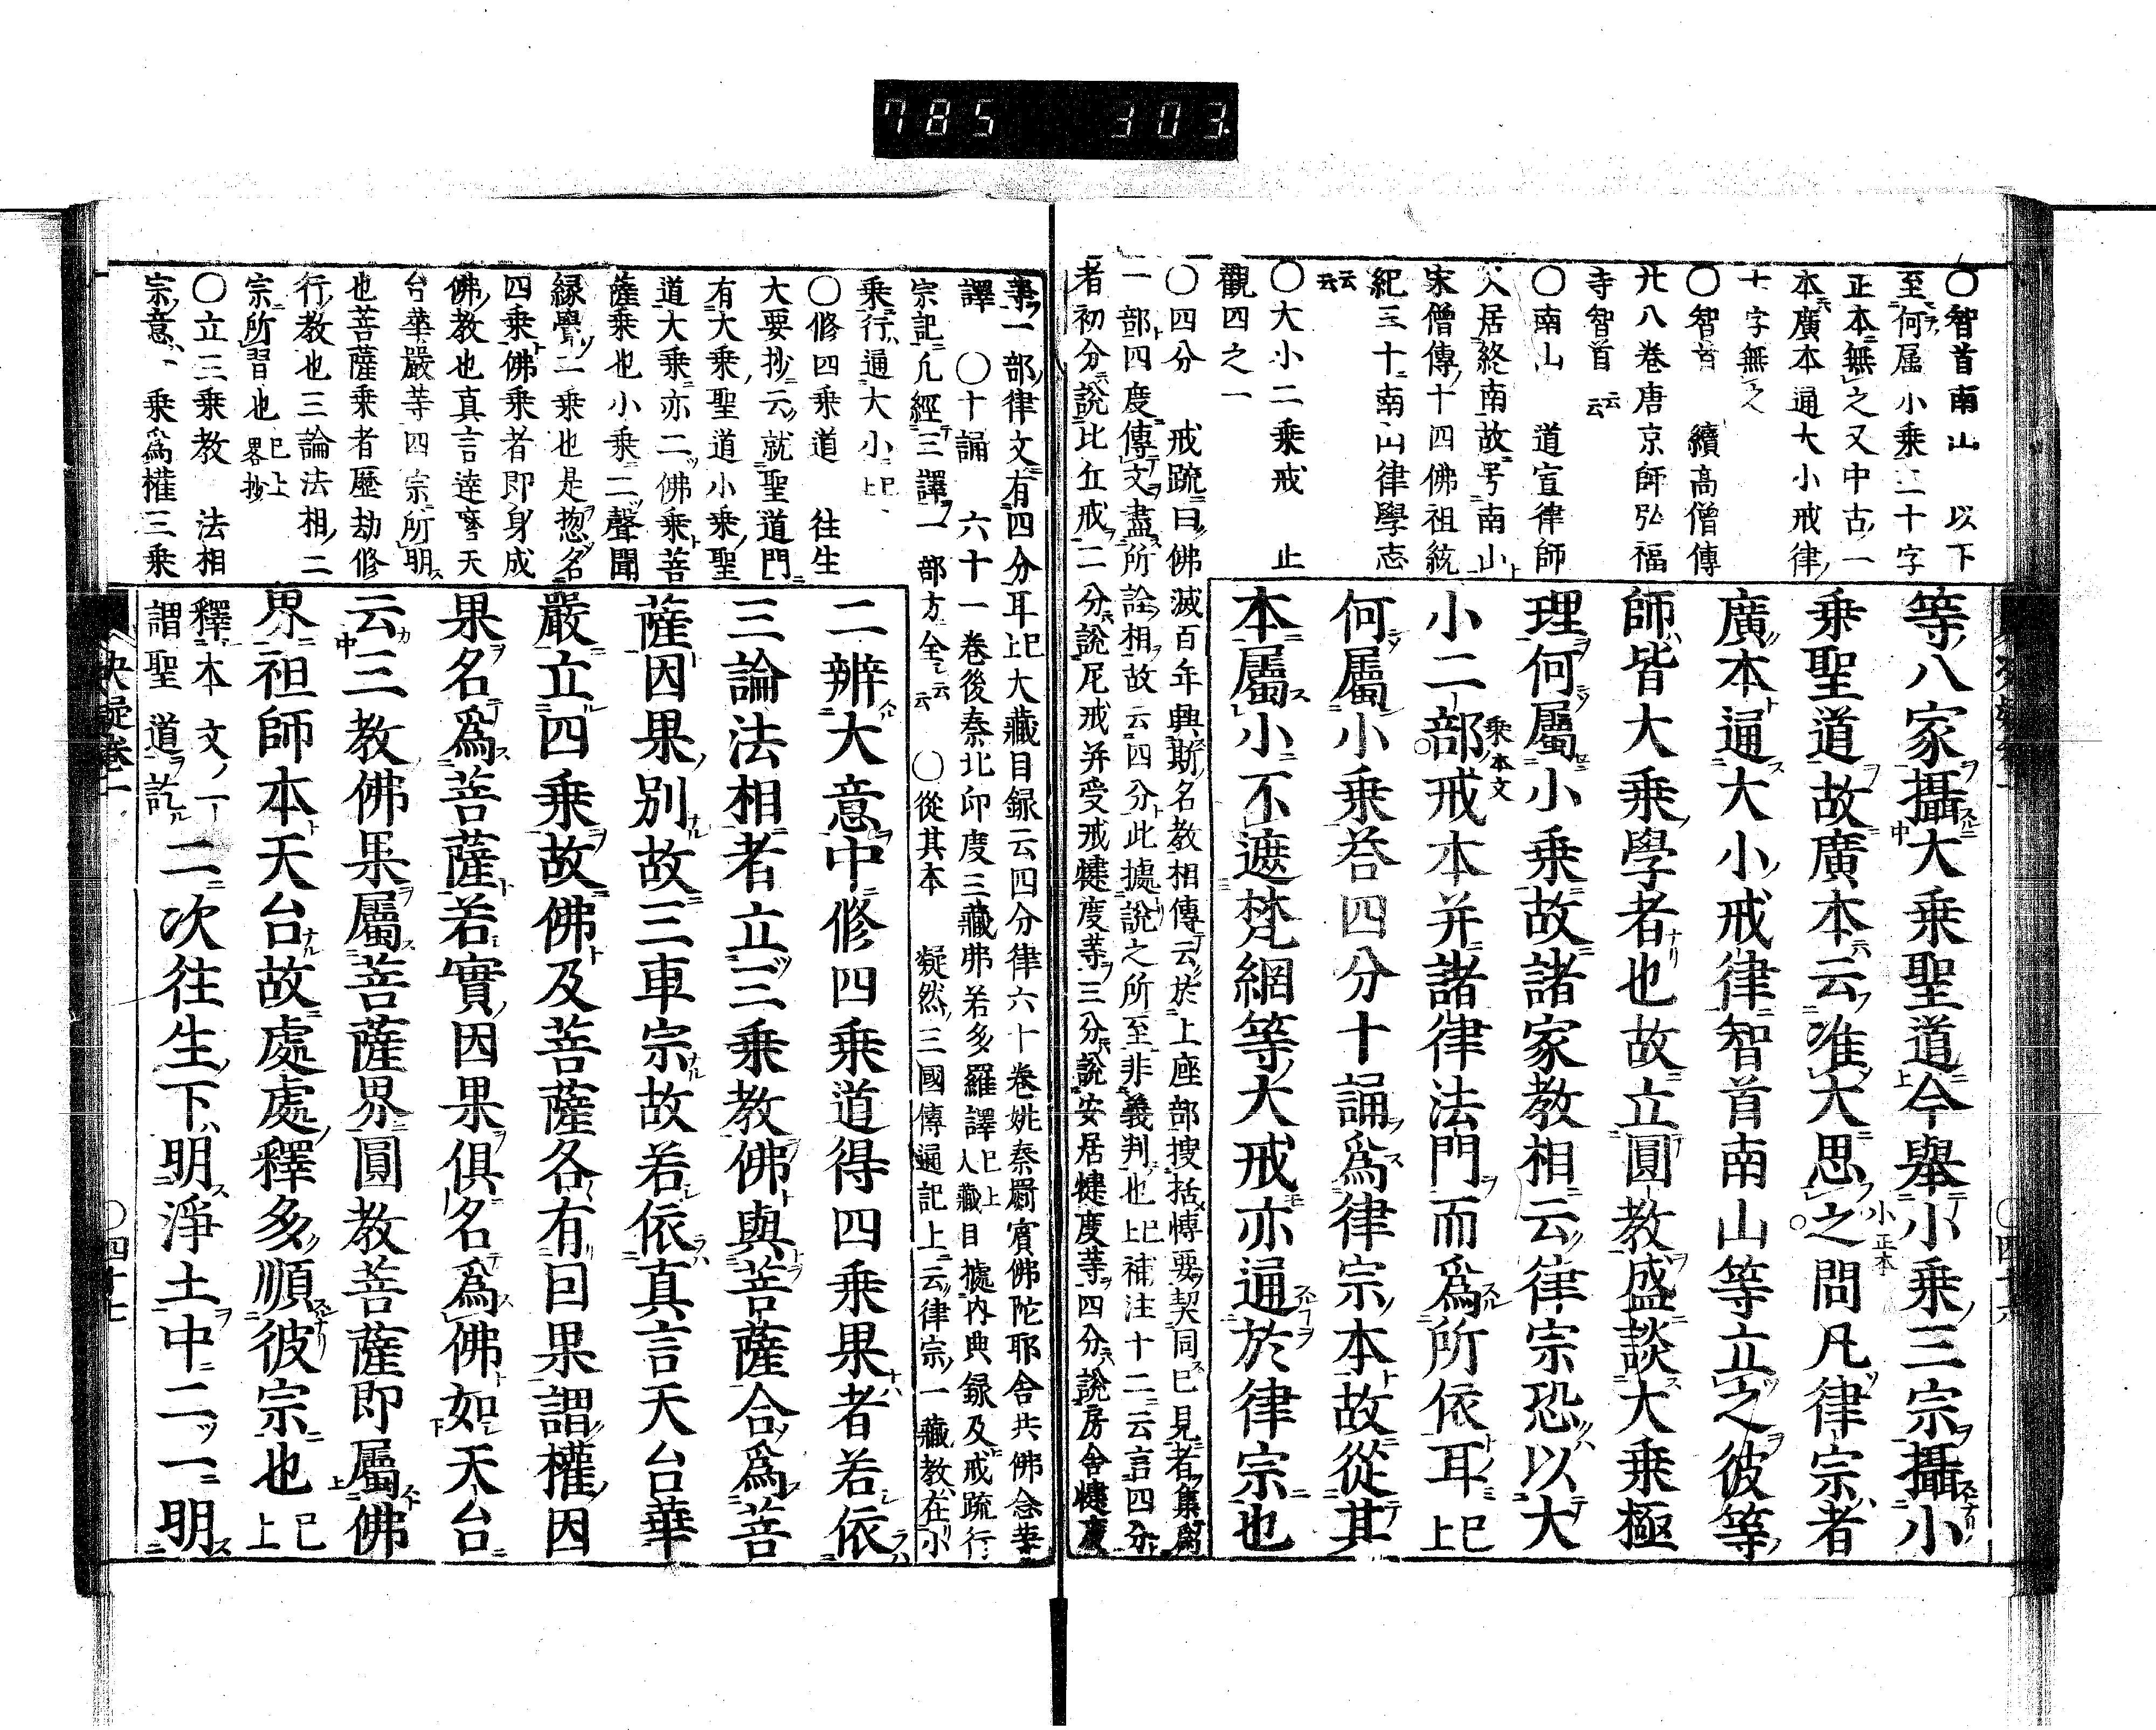 785 303
〇智首南山 以下
至何属小乗二十字
正本無之又中古一
本廣本通大小戒律
十字無之
〇智首 續高僧傳
廿八巻唐京師弘福
寺智首 云云
〇南山 道宣律師
久居終南故号南山
宋僧傳十四佛祖統
紀三十南山律學志
云云
〇大小二乗戒 止
觀四之一
〇四分 戒疏曰佛滅百年興斯名教相傳云於上座部捜括博要契同已見者集爲
一部四度傳文盡所詮相故云四分此據說之所至非義判也已上補注十二云言四分
者初分說比丘戒二分說尼戒并受戒犍度等三分說安居犍度等四分說房舍犍度
等八家攝大乗聖道今舉小乗三宗攝小
乗聖道故廣本云准大思之問凡律宗者
小正本
廣本通大小戒律智首南山等立之彼等
師皆大乗學者也故立圓教盛談大乗極
理何屬小乗故諸家教相云律宗恐以大
小二部戒本并諸律法門而爲所依耳已上
乗本文
何屬小乗荅四分十誦爲律宗本故從其
本屬小不遮梵網等大戒亦通於律宗也
等一部律文有四分耳已上大藏目録云四分律六十巻姚秦罽賓佛陀耶舍共佛念等
譯 〇十誦 六十一巻後秦北印度三藏弗若多羅譯已上人藏目據内典録及戒疏行
宗記凡經三譯一部方全云云 〇從其本 凝然三國傳通記上云律宗一藏教在小
乗行通大小已上
〇修四乗道 往生
大要抄云就聖道門
有大乗聖道小乗聖
道大乗亦二佛乗菩
薩乗也小乗二聲聞
縁覺二乗也是惣名
四乗佛乗者即身成
佛教也真言達磨天
台華嚴等四宗所明
也菩薩乗者歴劫修
行教也三論法相二
宗所習也已上畧抄
〇立三乗教 法相
宗意一乗爲權三乗
二辨大意中修四乗道得四乗果者若依
三論法相者立三乗教佛與菩薩合爲菩
薩因果別故三車宗故若依真言天台華
嚴立四乗故佛及菩薩各有因果謂權因
果名爲菩薩若實因果俱名爲佛如天台
云三教佛果屬菩薩界圓教菩薩即屬佛
界祖師本天台故處處釋多順彼宗也已上
釋本文ノ一謂聖道訖二次往生下明淨土中二一明
決疑巻一
〇四十七